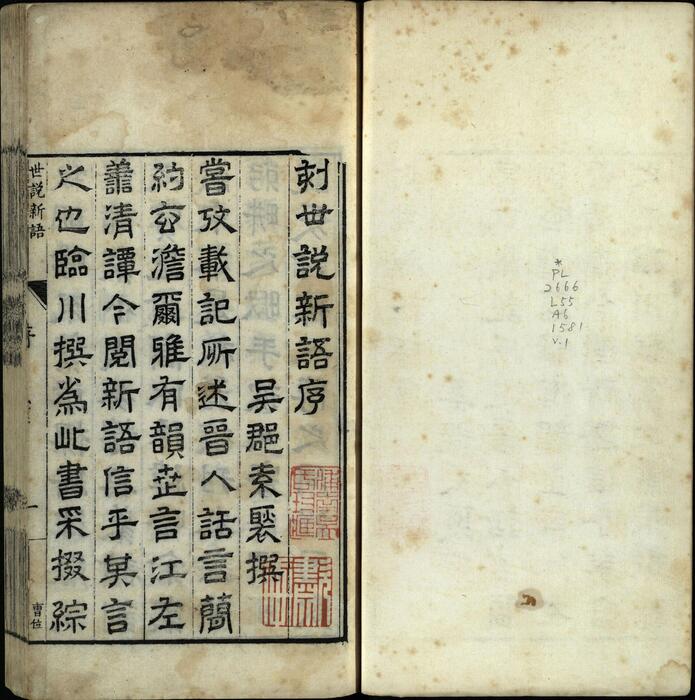 刻世說新語序
吳郡袁褧撰
嘗攷載記所述晉人話言簡
約玄澹爾雅有韻世言江左
善清譚今閱新語信乎其言
之也臨川撰為此書采掇綜
世說新語
序
一
曹仕
*
PL
2666
L55
A6
1581
v.1